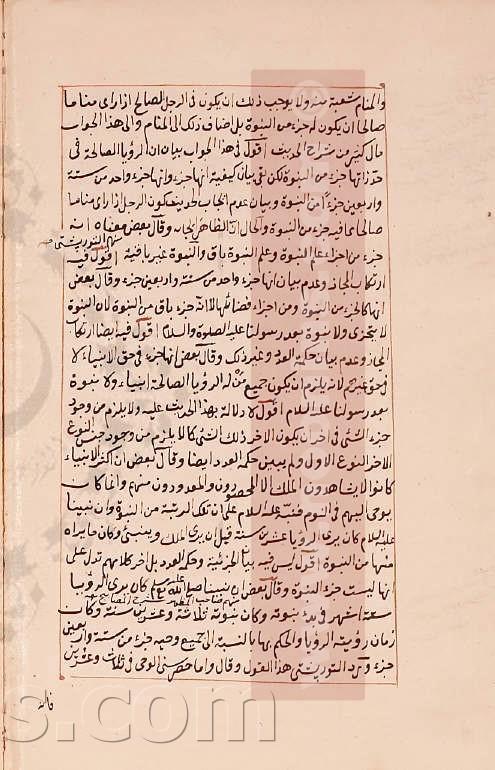 والمنام شعبة منه ولا يوجب ذلك ان يكون في الرجل الصالح اذا راى مناما
صالحا ان يكون له جزء من النبوة بل اضاف ذلك الى المنام والى هذا الجواب
مال كثير من شراح الحديث اقول في هذا الجواب بيان ان الرؤيا الصالحة في
حد ذاتها جزء من النبوة لكن بقي بيان كيفية انها جزء وانها جزء واحد من ستة
واربعين جزءا من النبوة وبيان عدم ايجاب الحديث كون الرجل اذا راى مناما
صالحا ما فيه جزء من النبوة والحال ان الظاهر ايجابه وقال بعض معناه انه
منهم التوربشتي
جزء من اجزاء علم النبوة وعلم النبوة باق والنبوة غير باقية اقول فيه
ارتكاب المجاز وعدم بيان انها جزء واحد من ستة واربعين جزء وقال بعض
انها كالجزء من النبوة ومن اجزاء فضائلها لا انه جزء باق من النبوة لان النبوة
لا يتجزى ولا نبوة بعد رسولنا عليه الصلوة والسلام اقول فيه ايضا ارتكاب
المجاز وعدم بيان حكمة العدد وغير ذلك وقال بعض انها جزء في حق الانبياء لا
في حق غيرهم لانه يلزم ان يكون جميع من له الرؤيا الصالحة انبياء ولا نبوة
بعد رسولنا عليه السلام اقول لا دلالة بهذا الحديث عليه ولا يلزم من وجود
جزء الشئ في اخر ان يكون الاخر ذلك الشئ كما لا يلزم من وجود جنس النوع
الاخر النوع الاول ولم يبين حكمة العدد ايضا وقال بعض ان اكثر الانبياء
كانوا لا يشاهدون الملك الا المحصورون والمعدودون منهم وانما كان
يوحى اليهم في النوم فنبه عليه السلام على ان تلك الرتبة من النبوة وان نبينا
عليه السلام كان يرى الرؤيا عشرين سنة قبل ان يرى الملك وينبئ وكان ما يراه
منها من النبوة اقول ليس فيه بيان الجزئية وحكمة العدد بل اخر كلامهم تدل على
انها ليست جزء النبوة وقال بعض ان نبينا صلى الله عليه وسلم كان يرى الرؤيا
ستة اشهر في بدء نبوته وكان نبوته ثلاثة وعشرين سنة وكان
زمان رؤيته الرؤيا والحكم بها بالنسبة الى جميع وحيه جزء من ستة واربعين
جزء ويرد التوربشتي هذا القول وقال واما حصر سني الوحي في ثلاث وعشرين
قاله
s.com